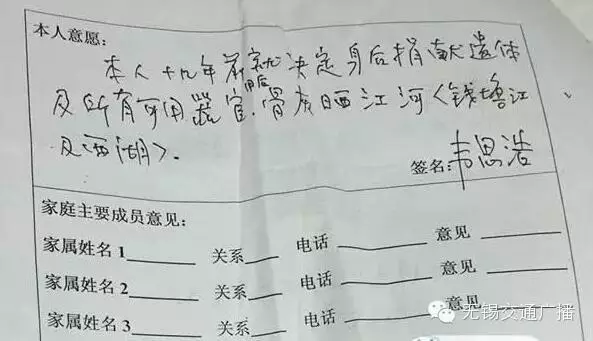 本人意愿：
本人十九年前就决定身后捐献遗体
及所有可用器官.用后骨灰晒江河〈钱塘江
及西湖〉.
签名：韦思浩
家庭主要成员意见：
家属姓名1______ 关系___ 电话______ 意见______
家属姓名2______ 关系___ 电话______ 意见______
家属姓名3______ 关系___ 电话______ 意见______
无锡交通广播